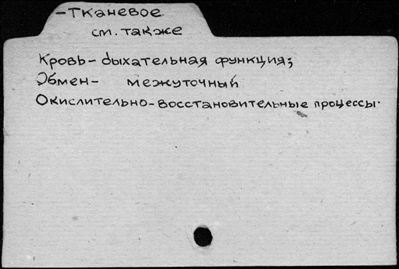 -Тканевое
см. также
Кровь- дыхательная функция;
Обмен- межуточный
Окислительно-восстановительные процессы.